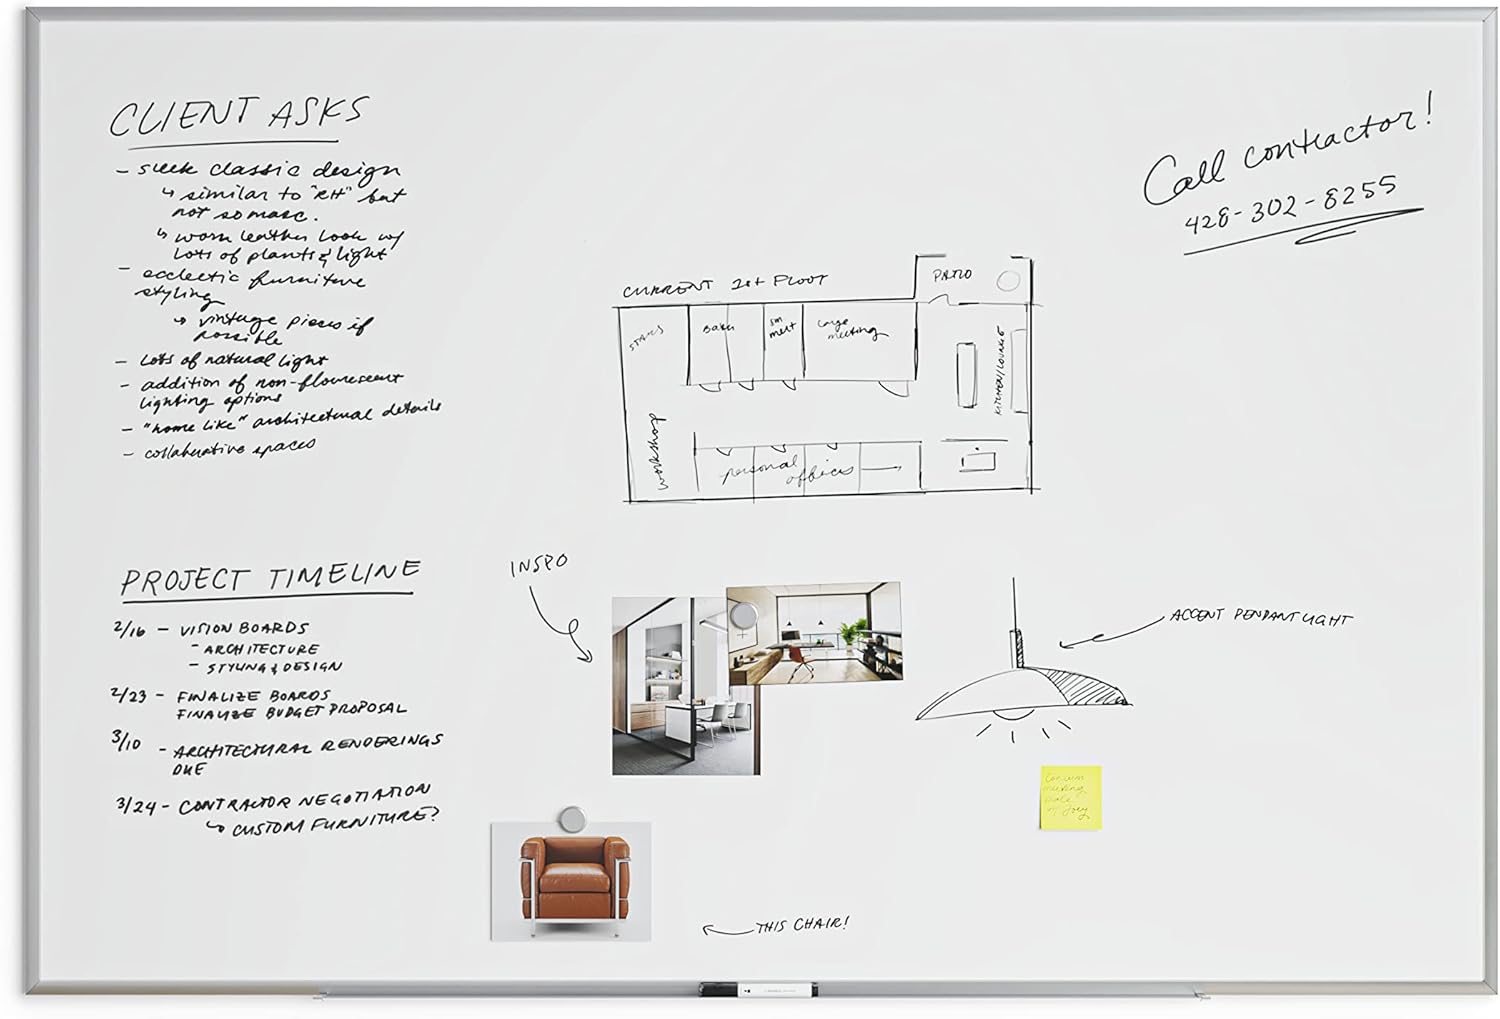 CLIENT ASKS
- sleek classic design
↳ similar to "RH" but
not so masc.
↳ worn leather look w/
lots of plants & light
- ecclectic furniture
styling
↳ vintage pieces if
possible
- lots of natural light
- addition of non-flourescent
lighting options
- "home like" architectural details
- collaborative spaces
Call contractor!
428-302-8255
CURRENT 2nd FLOOR
PATIO
STAIRS
sm.
meet
large
meeting
KITCHEN/LOUNGE
workshop
personal
offices
PROJECT TIMELINE
2/16 - VISION BOARDS
- ARCHITECTURE
- STYLING & DESIGN
2/23 - FINALIZE BOARDS
FINALIZE BUDGET PROPOSAL
3/10 - ARCHITECTURAL RENDERINGS
DUE
3/24 - CONTRACTOR NEGOTIATION
↳ CUSTOM FURNITURE?
INSPO
ACCENT PENDANT LIGHT
THIS CHAIR!